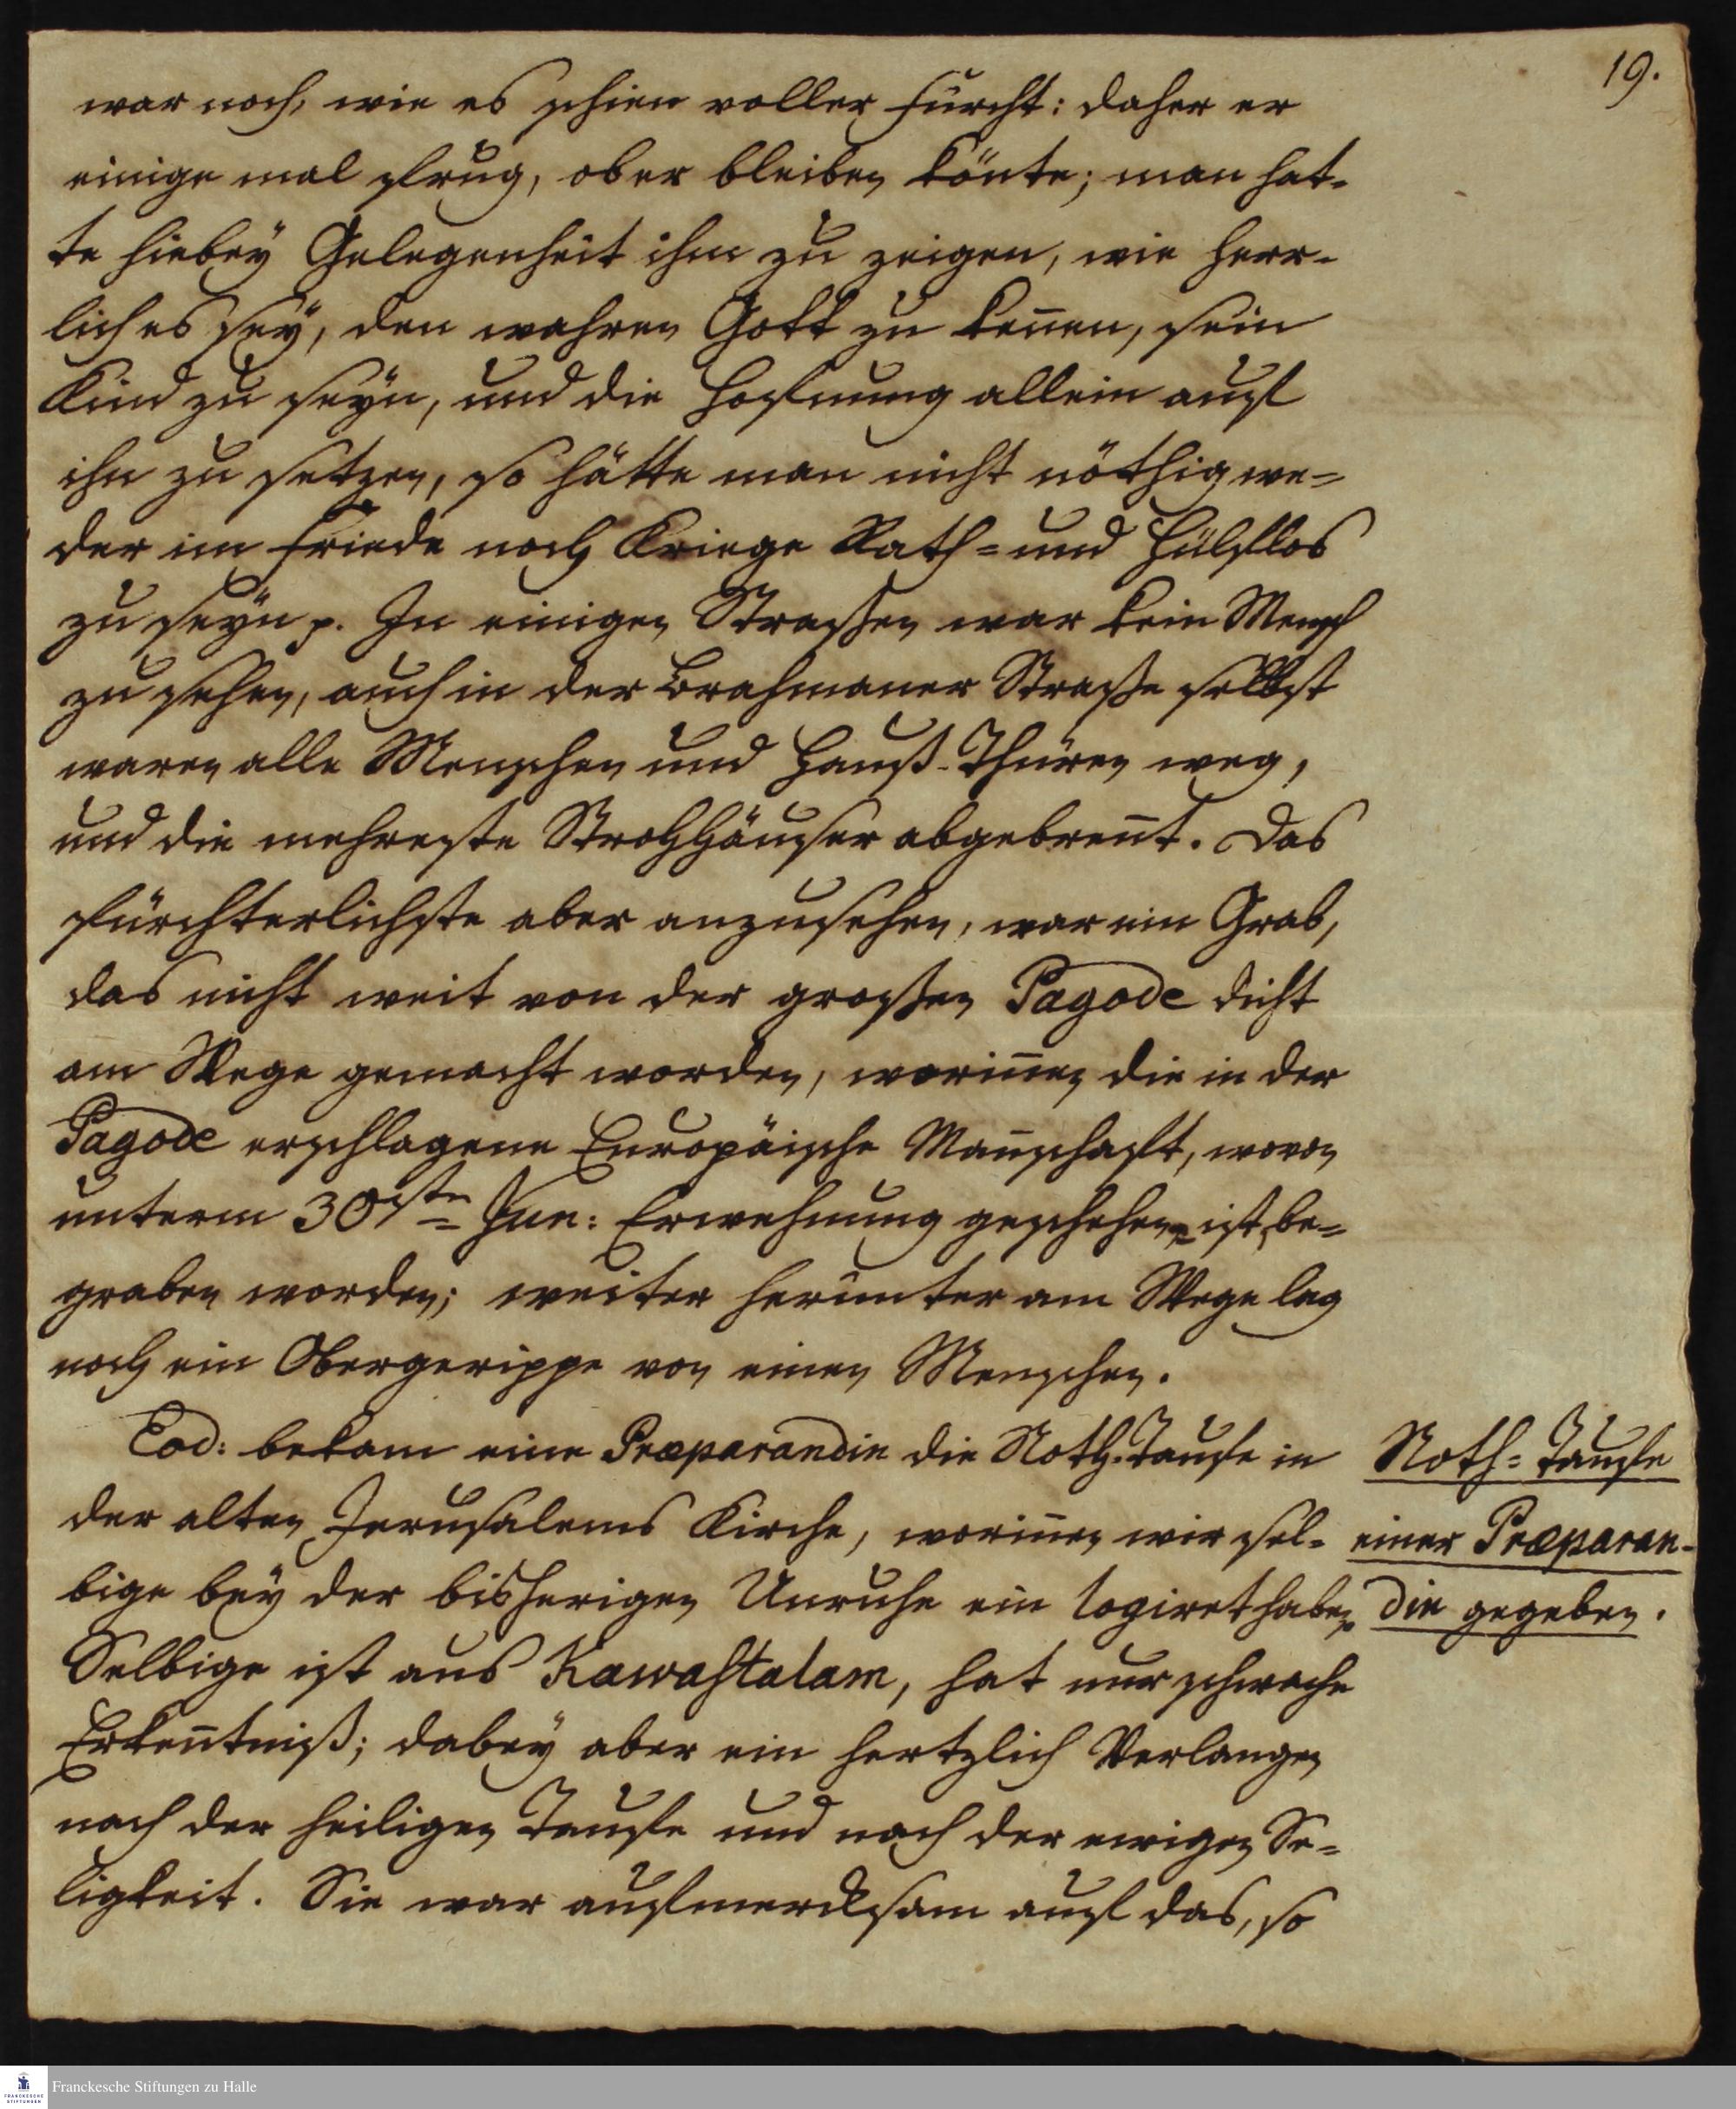 19.
war noch, wie es schien voller Furcht: daher er
einige mal frug, ob er bleiben könte; man hat-
te hiebey Gelegenheit ihm zu zeigen, wie herr-
lich es sey, den wahren Gott zu keñen, sein
Kind zu seyn, und die Hofnung allein auf
ihn zu setzen, so hätte man nicht nöthig we-
der im Friede noch Kriege Rath- und Hülflos
zu seyn p. In einigen Strassen war kein Mensch
zu sehen, auch in der Brahmaner Strasse selbst
waren alle Menschen und Hauß-Thüren weg,
und die mehreste Strohhäuser abgebreñt. Das
fürchterlichste aber anzusehen, war ein Grab,
das nicht weit von der grossen Pagode dicht
am Wege gemacht worden, woriñen die in der
Pagode erschlagene Europäische Mañschaft, wovon
unterm 30sten Jun: Erwehnung geschehen ist, be-
graben worden; weiter herunter am Wege lag
noch ein Obergerippe von einen Menschen.
Eod: bekam eine Præparandin die Noth-Taufe in
der alten Jerusalems Kirche, woriñen wir sel-
bige bey der bisherigen Unruhe ein logiret haben.
Selbige ist aus Kawastalam, hat nur schwache
Erkeñtniß; dabey aber ein hertzlich Verlangen
nach der heiligen Taufe und nach der ewigen Se-
ligkeit. Sie war aufmercksam auf das, so
Noth-Taufe
einer Præparan-
din gegeben.
Franckesche Stiftungen zu Halle
FRANCKESCHE
STIFTUNGEN